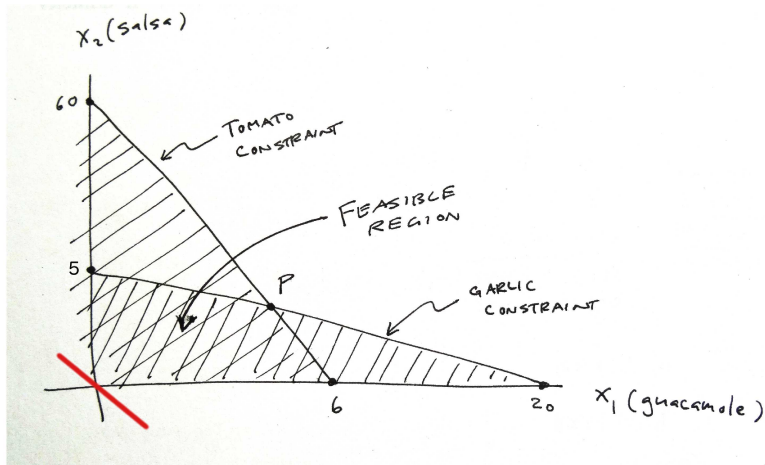 x₂ (salsa)
60
TOMATO
CONSTRAINT
FEASIBLE
REGION
5
P
GARLIC
CONSTRAINT
6
20
x₁ (guacamole)